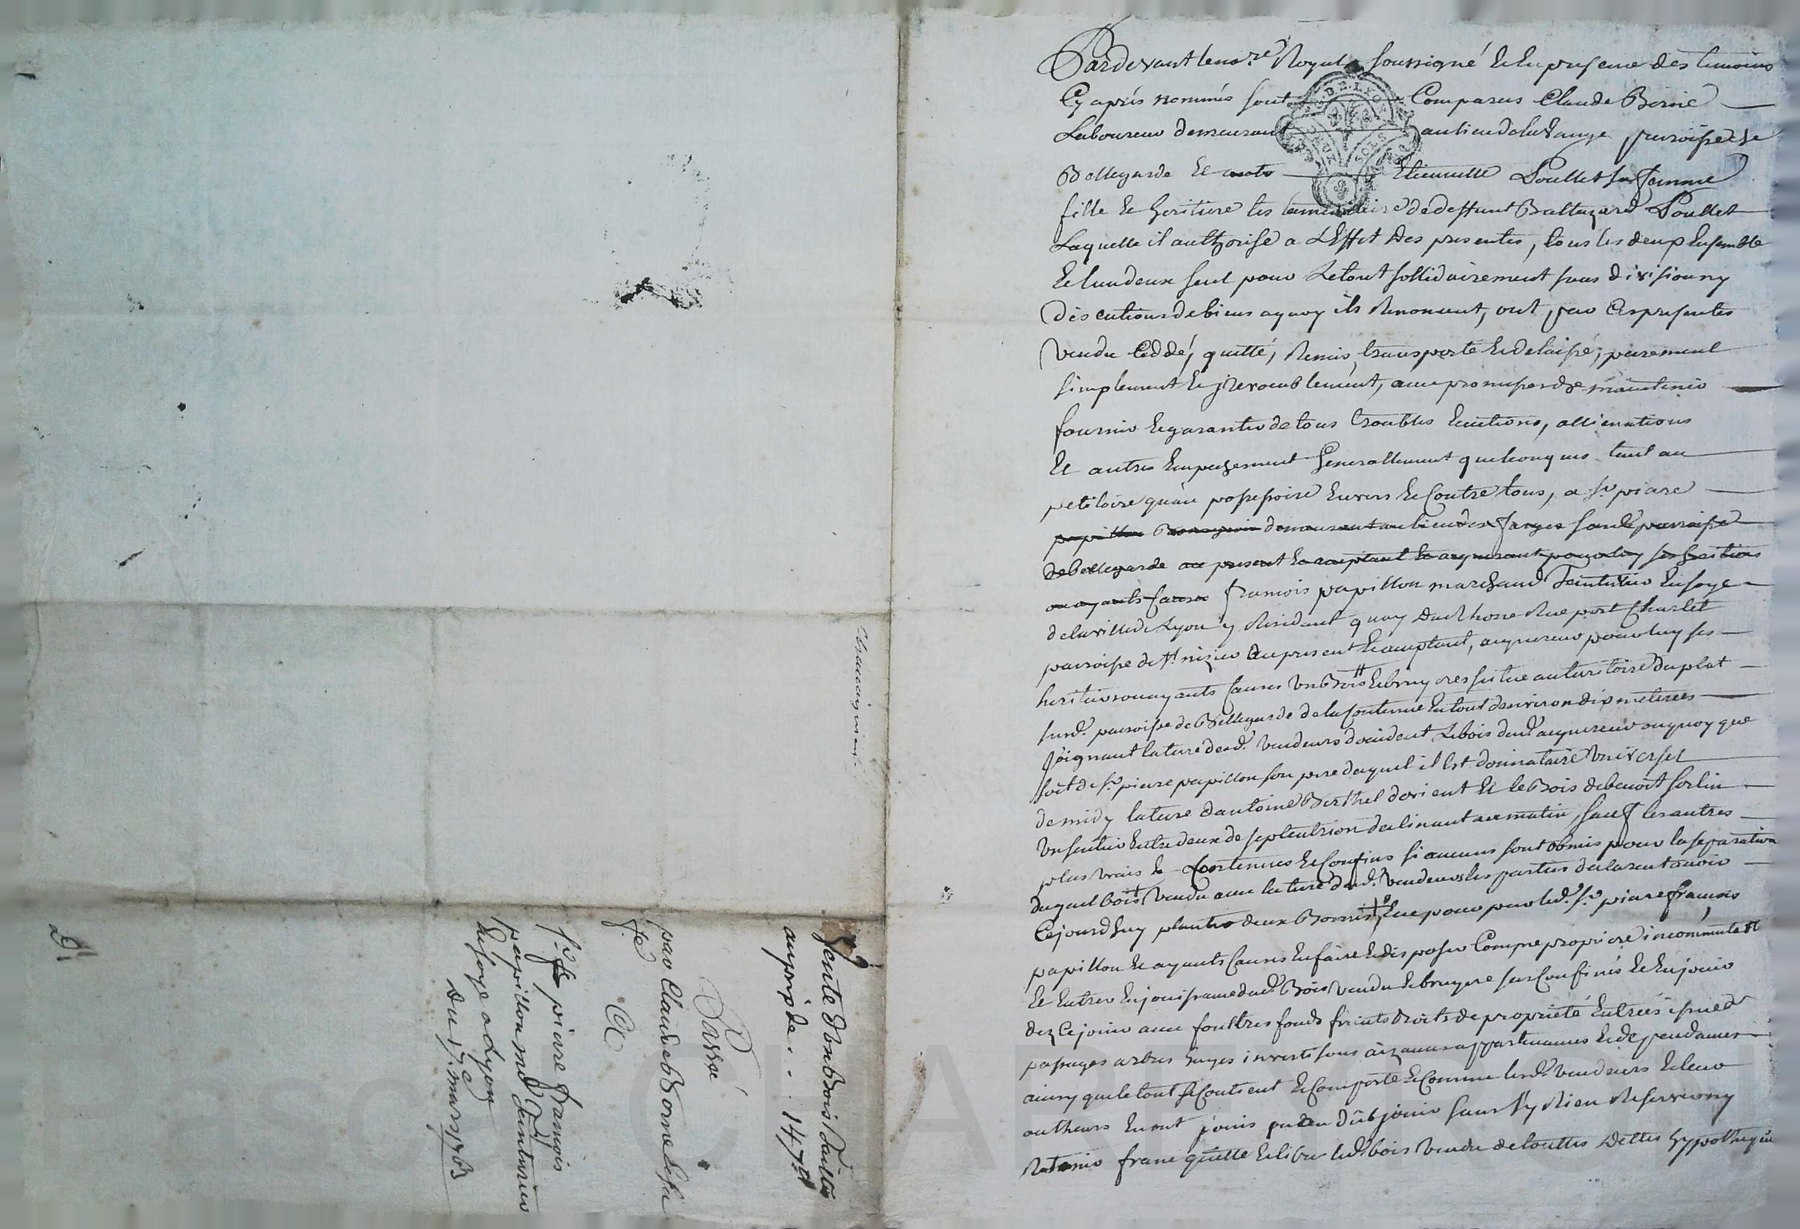 Pardevant le no.re Royal soussigné & En presence des temoins
Cy aprés nommés sont Comparus Claude Borne
Laboureur demeurant au lieu de la Vauge paroisse de
Bellegarde et Etiennette Poullet sa femme
fille & heritiere testamentaire de deffunt Baltazard Poullet
Laquelle il authorise a L'Effet des presentes, tous les deux Ensemble
& lun deux seul pour Le tout sollidairement sans division ny
discution de biens a quoy ils Renoncent, ont par Ces presentes
Vendu Ceddé, quitté, Remis, transporté & delaissé, purement
simplement & jrrevocablement, avec promesse de maintenir
fournir & garantir de tous troubles Evictions, allienations
Et autres Empechement Generallement quelconques tant au
petitoire qu'au possessoire Envers & Contre tous, a Sr piare
papillon demeurant au lieu des farges sur la paroisse
de Bellegarde au present & acceptant & acquerant pour luy ses heritiers
ou ayants cause françois papillon marchand Teinturier En soye
de la ville de Lyon y Residant quay du Rhone Rue port Charlet
paroisse de St nizier au present & acceptant, acquereur pour luy ses
heritiers ou ayants causes un Bois & bruyeres situé au territoire du plat
susd. paroisse de Bellegarde de la Contenue En tout denviron dix meterées
Joignant la terre desd. Vendeurs doccident Le bois dud. acquereur ou quoy que
soit de Sr piare papillon son pere duquel il Est donnataire Universel
de midy la terre dantoine Berthel dorient Et le Bois de benoit forlin
un sentier Entre deux de septentrion declinant au matin, sauf les autres
plus vrais & Contenues & Confins si aucuns sont obmis pour la separation
duquel bois vendu avec la terre desd. Vendeurs les parties declarent avoir
Cejourdhuy planté deux Bornes, & ce pour par led. Sr piare françois
papillon & ayants Causes En faire & disposer Comme propriere incommutable
Et Entrer En jouissance dud. Bois Vendu & bruyere sus Confinés & En jouir
dez Ce jour avec fonds treffonds fruits droits de proprieté Entrées issues
passages arbres hayes inverts sous aizances appartenances & dependances
ainsy que le tout se Contient & Comporte & Comme lesd. vendeurs & leur
autheurs En ont jouis pu ou dub jouir sans s'y Rien Reserver ny
Retenir franc quitte & libre led. bois vendu de touttes dettes hypotheques
Vente d'un Bois Taillis
au prix de.. 147 lt
Passé
par Claude Borne & sa
fe
A
Sr piare françois
papillon md Teinturier
En soye a Lyon
Du 17.e mars 1763